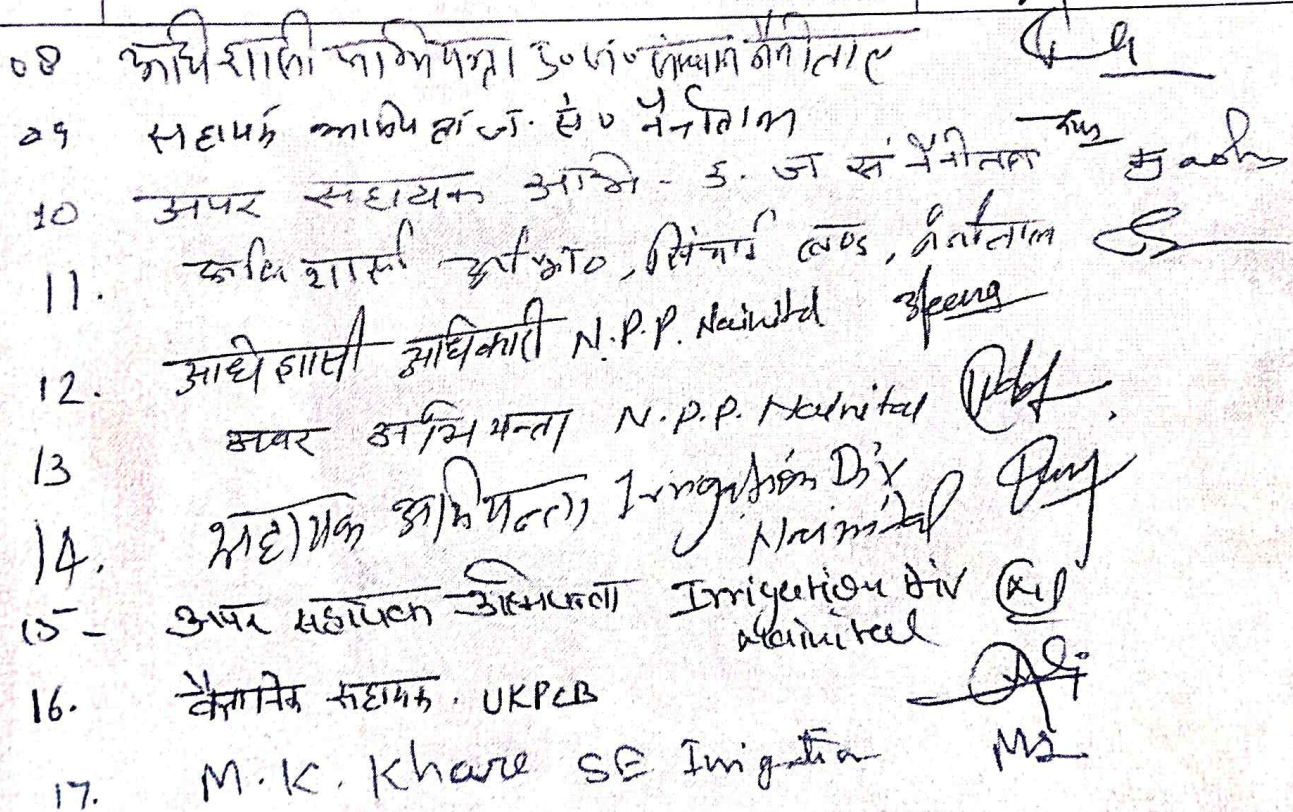 08 अधिशासी अभियन्ता उ०ज०संस्थान नैनीताल
09 सहायक अभियन्ता ज. सं० नैनीताल
10 अपर सहायक अभि - उ. ज सं नैनीताल
11. अधिशासी अभि०, सिंचाई खण्ड, नैनीताल
12. अधिशासी अधिकारी N.P.P. Nainital
13 अवर अभियन्ता N.P.P. Nainital
14. सहायक अभियन्ता Irrigation Div
Nainital
15- अपर सहायक अभियन्ता Irrigation Div
Nainital
16. वैज्ञानिक सहायक. UKPCB
17. M.K. Khare SE Irrigation